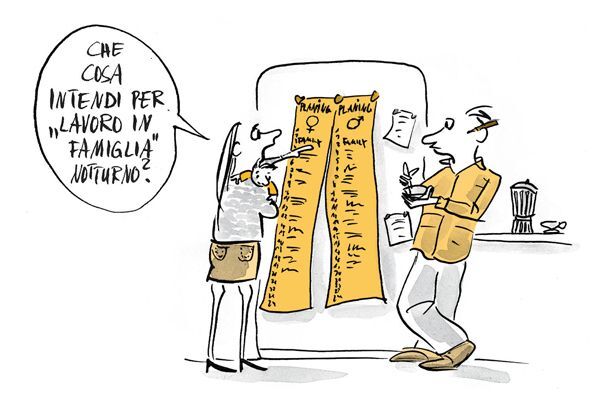 CHE
COSA
INTENDI PER
„LAVORO IN
FAMIGLIA“
NOTTURNO?
PLANING PLANING
♀ ♂
FAMILY FAMILY